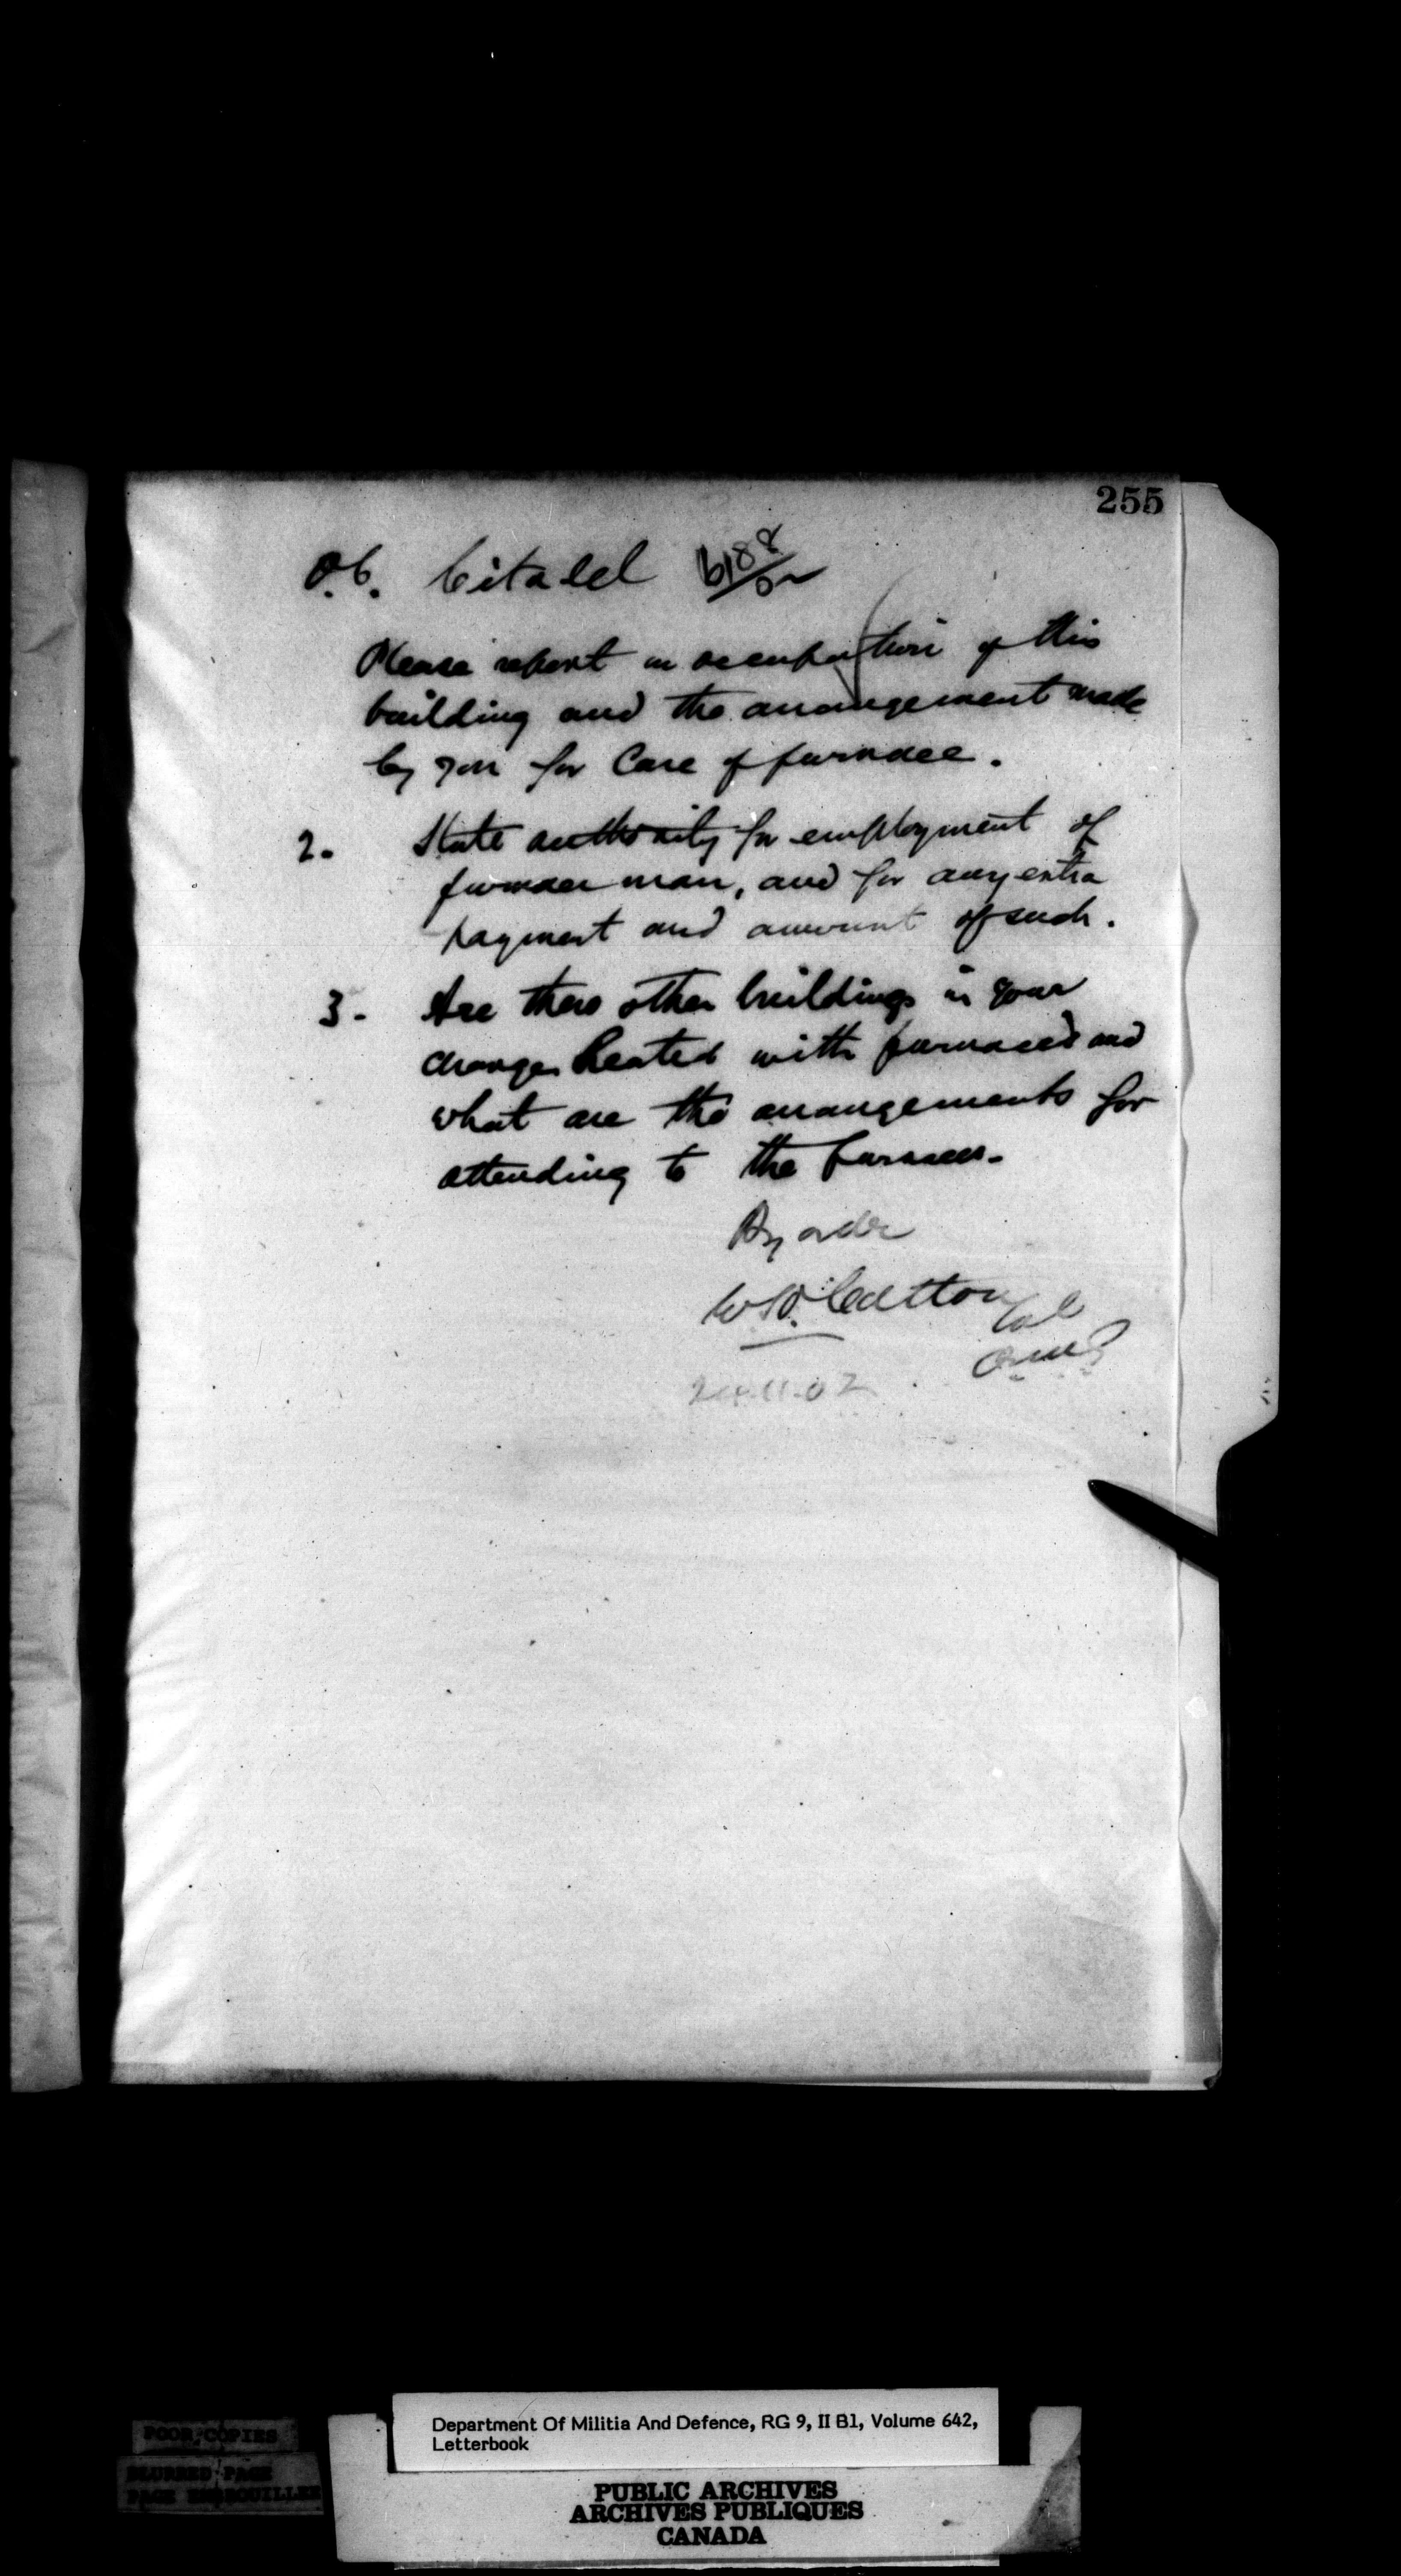 255
O.C. Citadel 6188/02
Please report on occupation of this
building and the arrangement made
by you for Care of furnace.
2. State authority for employment of
furnace man, and for any extra
payment and amount of such.
3. Are there other buildings in your
charge heated with furnaces and
what are the arrangements for
attending to the furnaces.
By order
Col
24.11.02
Department Of Militia And Defence, RG 9, II B1, Volume 642,
Letterbook
POOR COPIES
BLURRED PAGE
PUBLIC ARCHIVES
ARCHIVES PUBLIQUES
CANADA